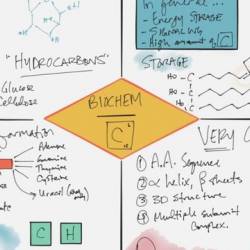 In general...
- Energy STORAGE
- SIGNALING
- High amount of C
"HYDROCARBONS"
STORAGE
HO-C
HO-C
HO-C
Glucose
Cellulose
BIOCHEM
C
VERY
Adenine
Guanine
Thymine
Cytosine
Uracil
① A.A. Sequence
② α helix, β sheets
③ 3D structure
④ Multiple subunit
Complex.
C H